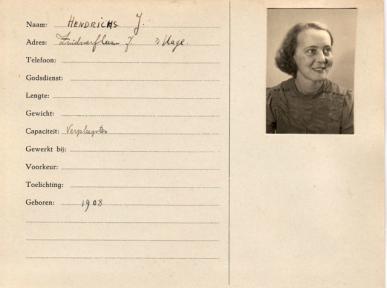 Naam: HENDRICHS J.
Adres: 7 's Hage.
Telefoon:
Godsdienst:
Lengte:
Gewicht:
Capaciteit: Verpleegster
Gewerkt bij:
Voorkeur:
Toelichting:
Geboren: 1908